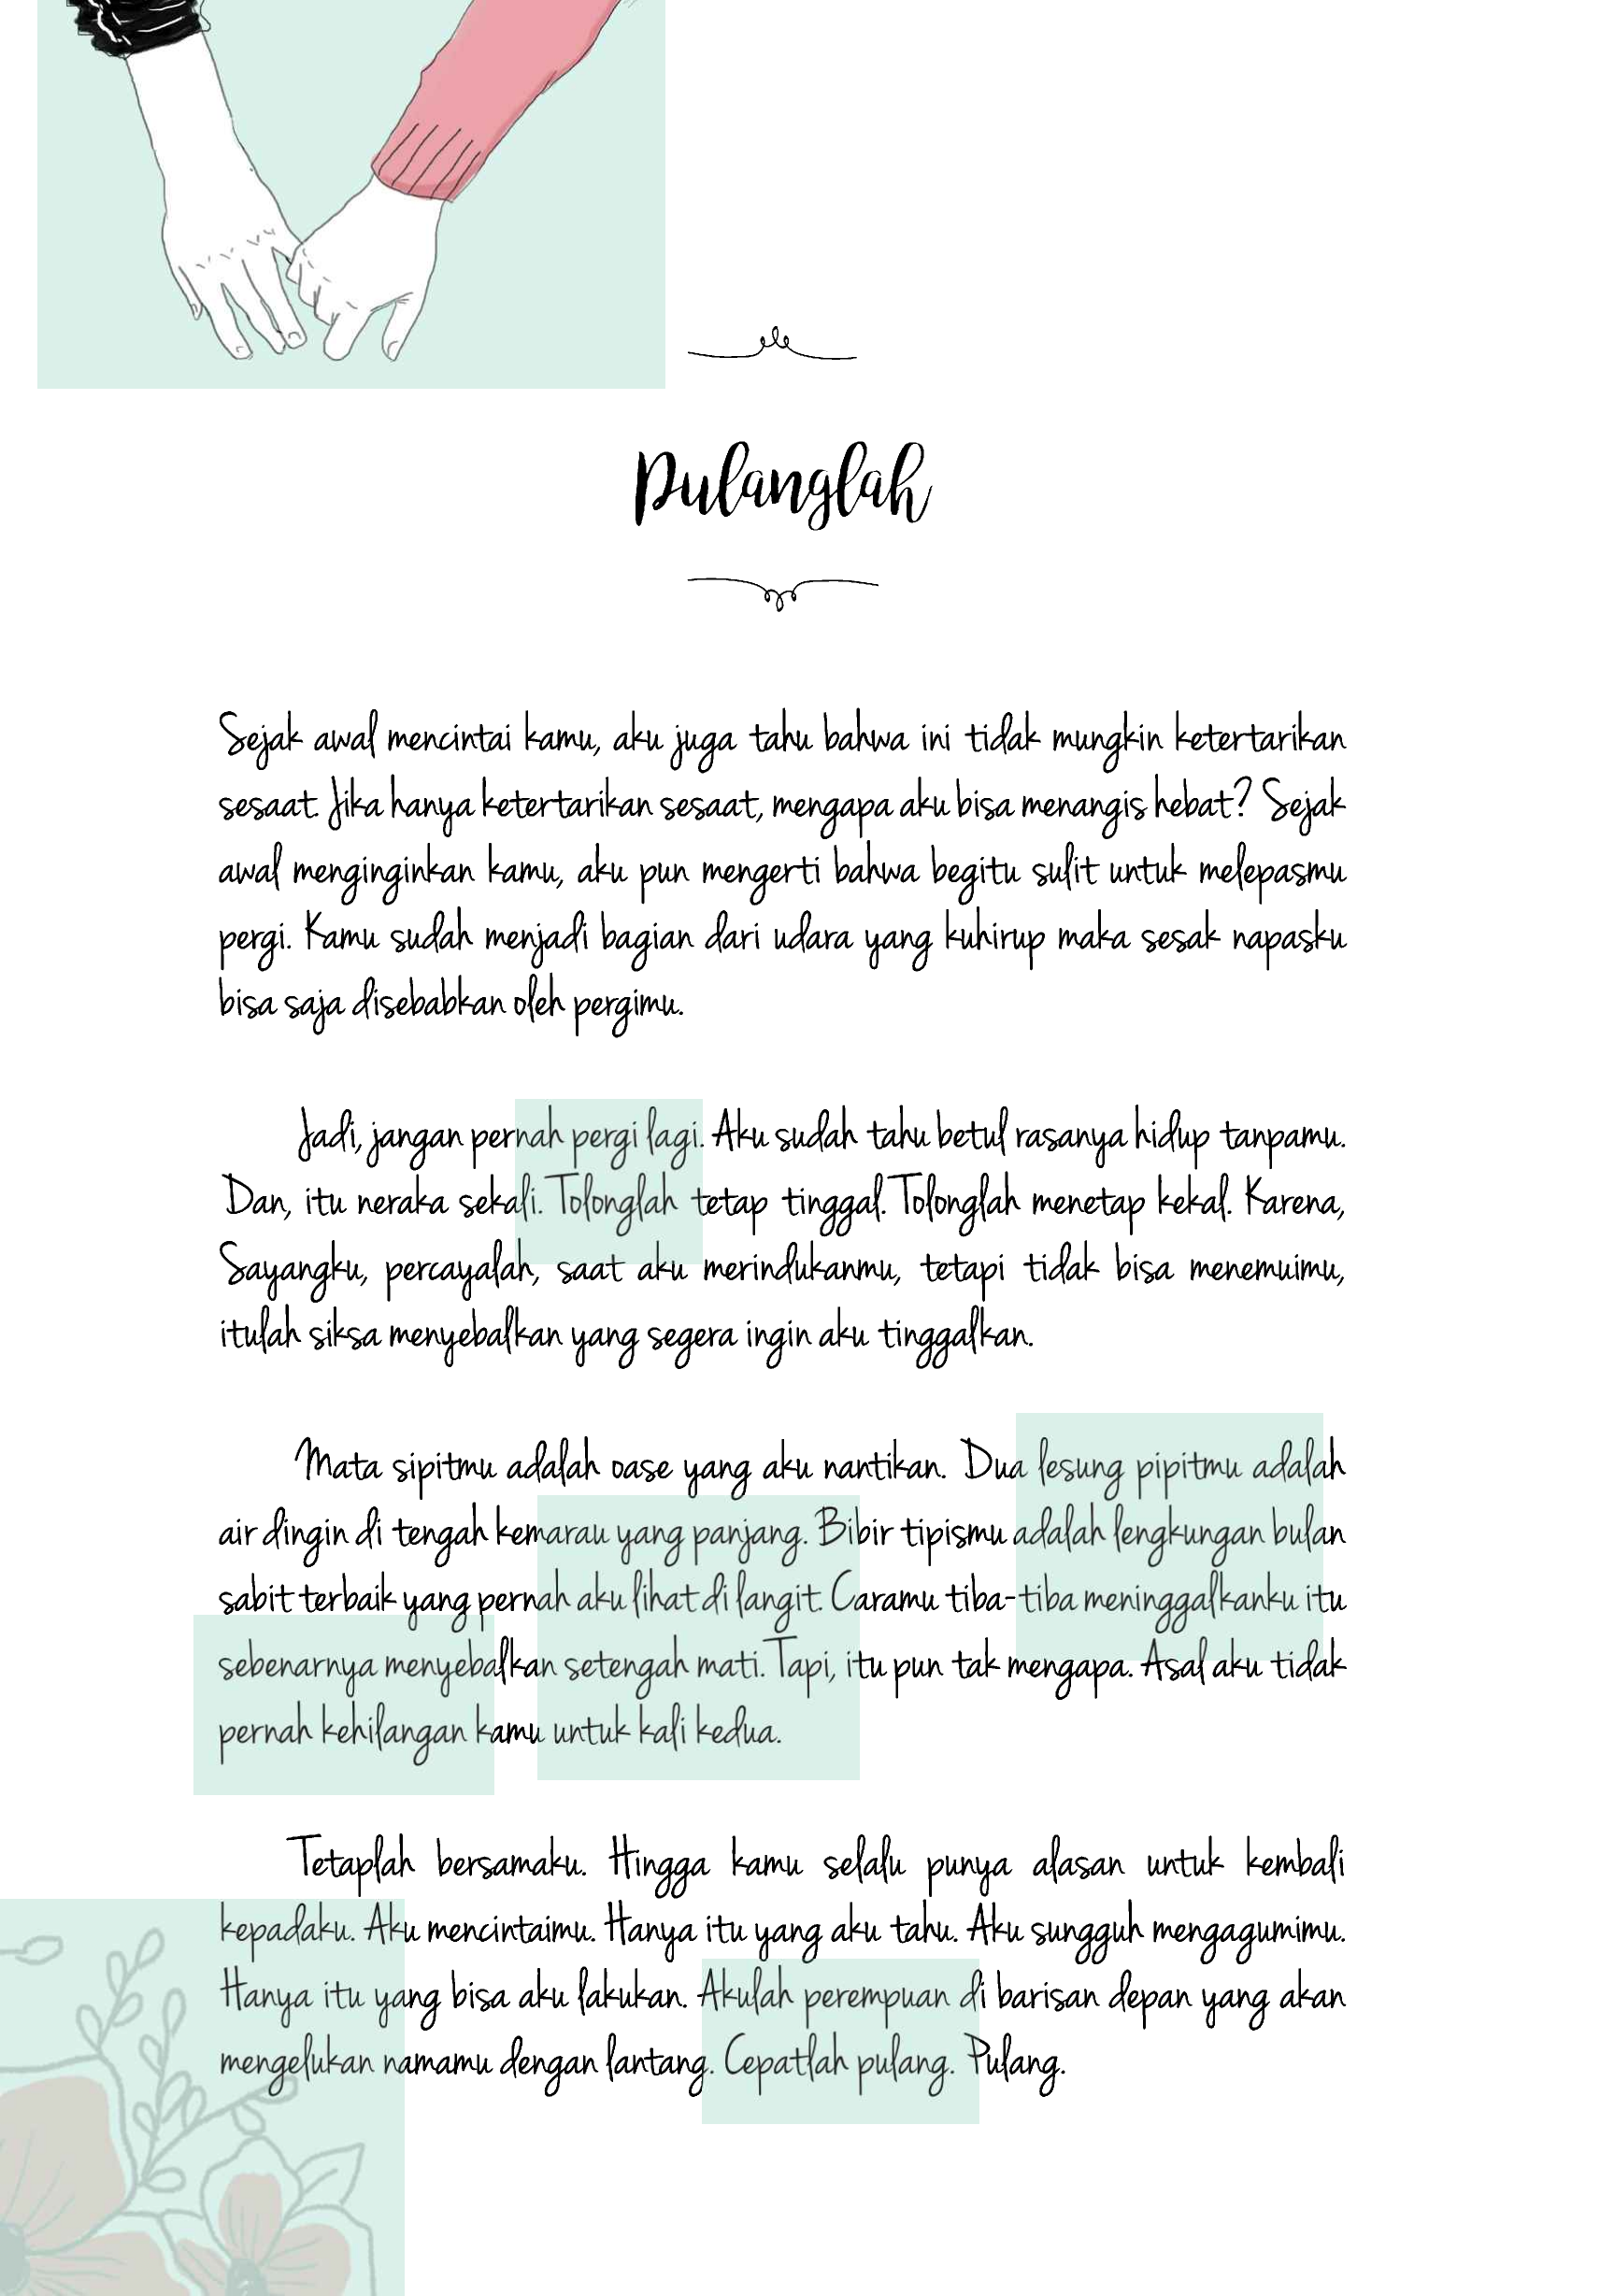 Pulanglah
Sejak awal mencintai kamu, aku juga tahu bahwa ini tidak mungkin ketertarikan
sesaat. Jika hanya ketertarikan sesaat, mengapa aku bisa menangis hebat? Sejak
awal menginginkan kamu, aku pun mengerti bahwa begitu sulit untuk melepasmu
pergi. Kamu sudah menjadi bagian dari udara yang kuhirup maka sesak napasku
bisa saja disebabkan oleh pergimu.
Jadi, jangan pernah pergi lagi. Aku sudah tahu betul rasanya hidup tanpamu.
Dan, itu neraka sekali. Tolonglah tetap tinggal. Tolonglah menetap kekal. Karena,
Sayangku, percayalah, saat aku merindukanmu, tetapi tidak bisa menemuimu,
itulah siksa menyebalkan yang segera ingin aku tinggalkan.
Mata sipitmu adalah oase yang aku nantikan. Dua lesung pipitmu adalah
air dingin di tengah kemarau yang panjang. Bibir tipismu adalah lengkungan bulan
sabit terbaik yang pernah aku lihat di langit. Caramu tiba-tiba meninggalkanku itu
sebenarnya menyebalkan setengah mati. Tapi, itu pun tak mengapa. Asal aku tidak
pernah kehilangan kamu untuk kali kedua.
Tetaplah bersamaku. Hingga kamu selalu punya alasan untuk kembali
kepadaku. Aku mencintaimu. Hanya itu yang aku tahu. Aku sungguh mengagumimu.
Hanya itu yang bisa aku lakukan. Akulah perempuan di barisan depan yang akan
mengelukan namamu dengan lantang. Cepatlah pulang. Pulang.